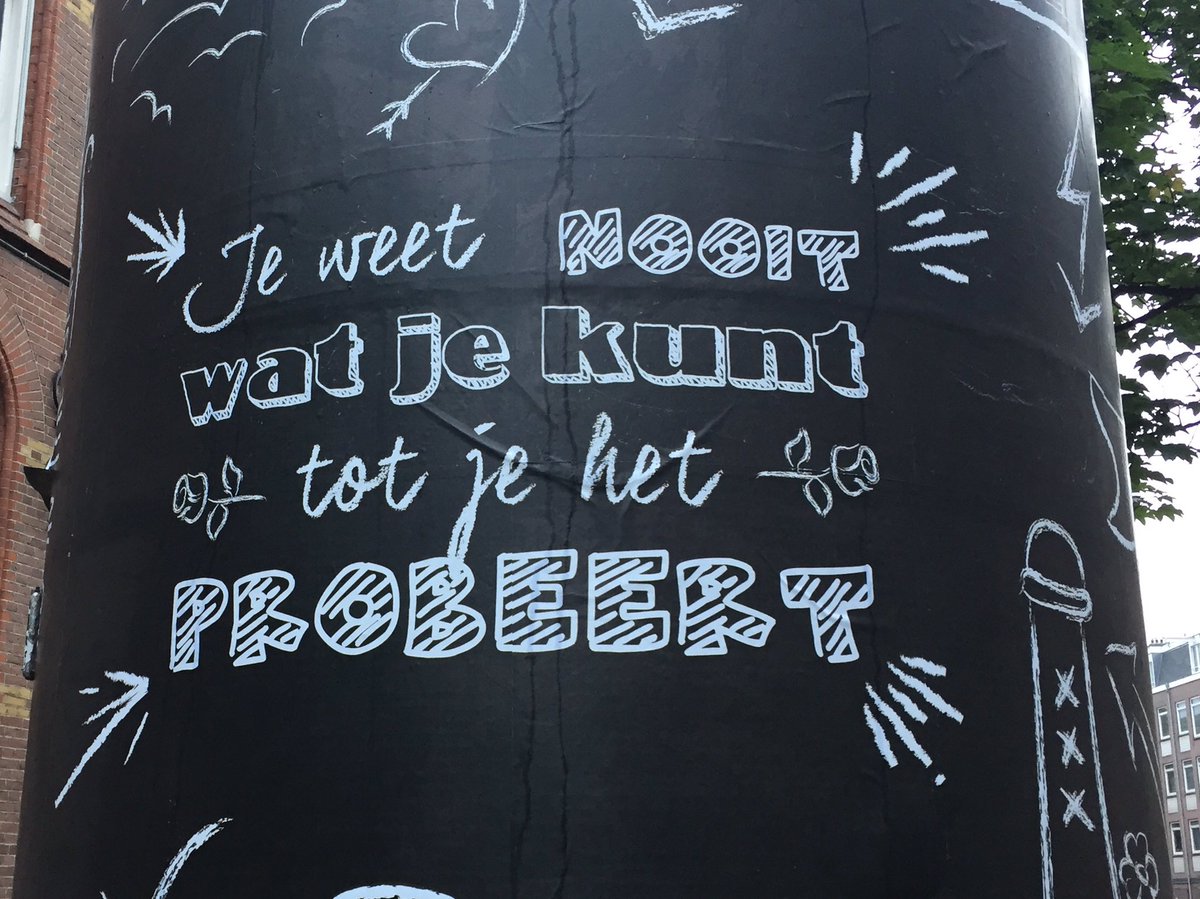 Je weet NOOIT
wat je kunt
tot je het
PROBEERT
XXX